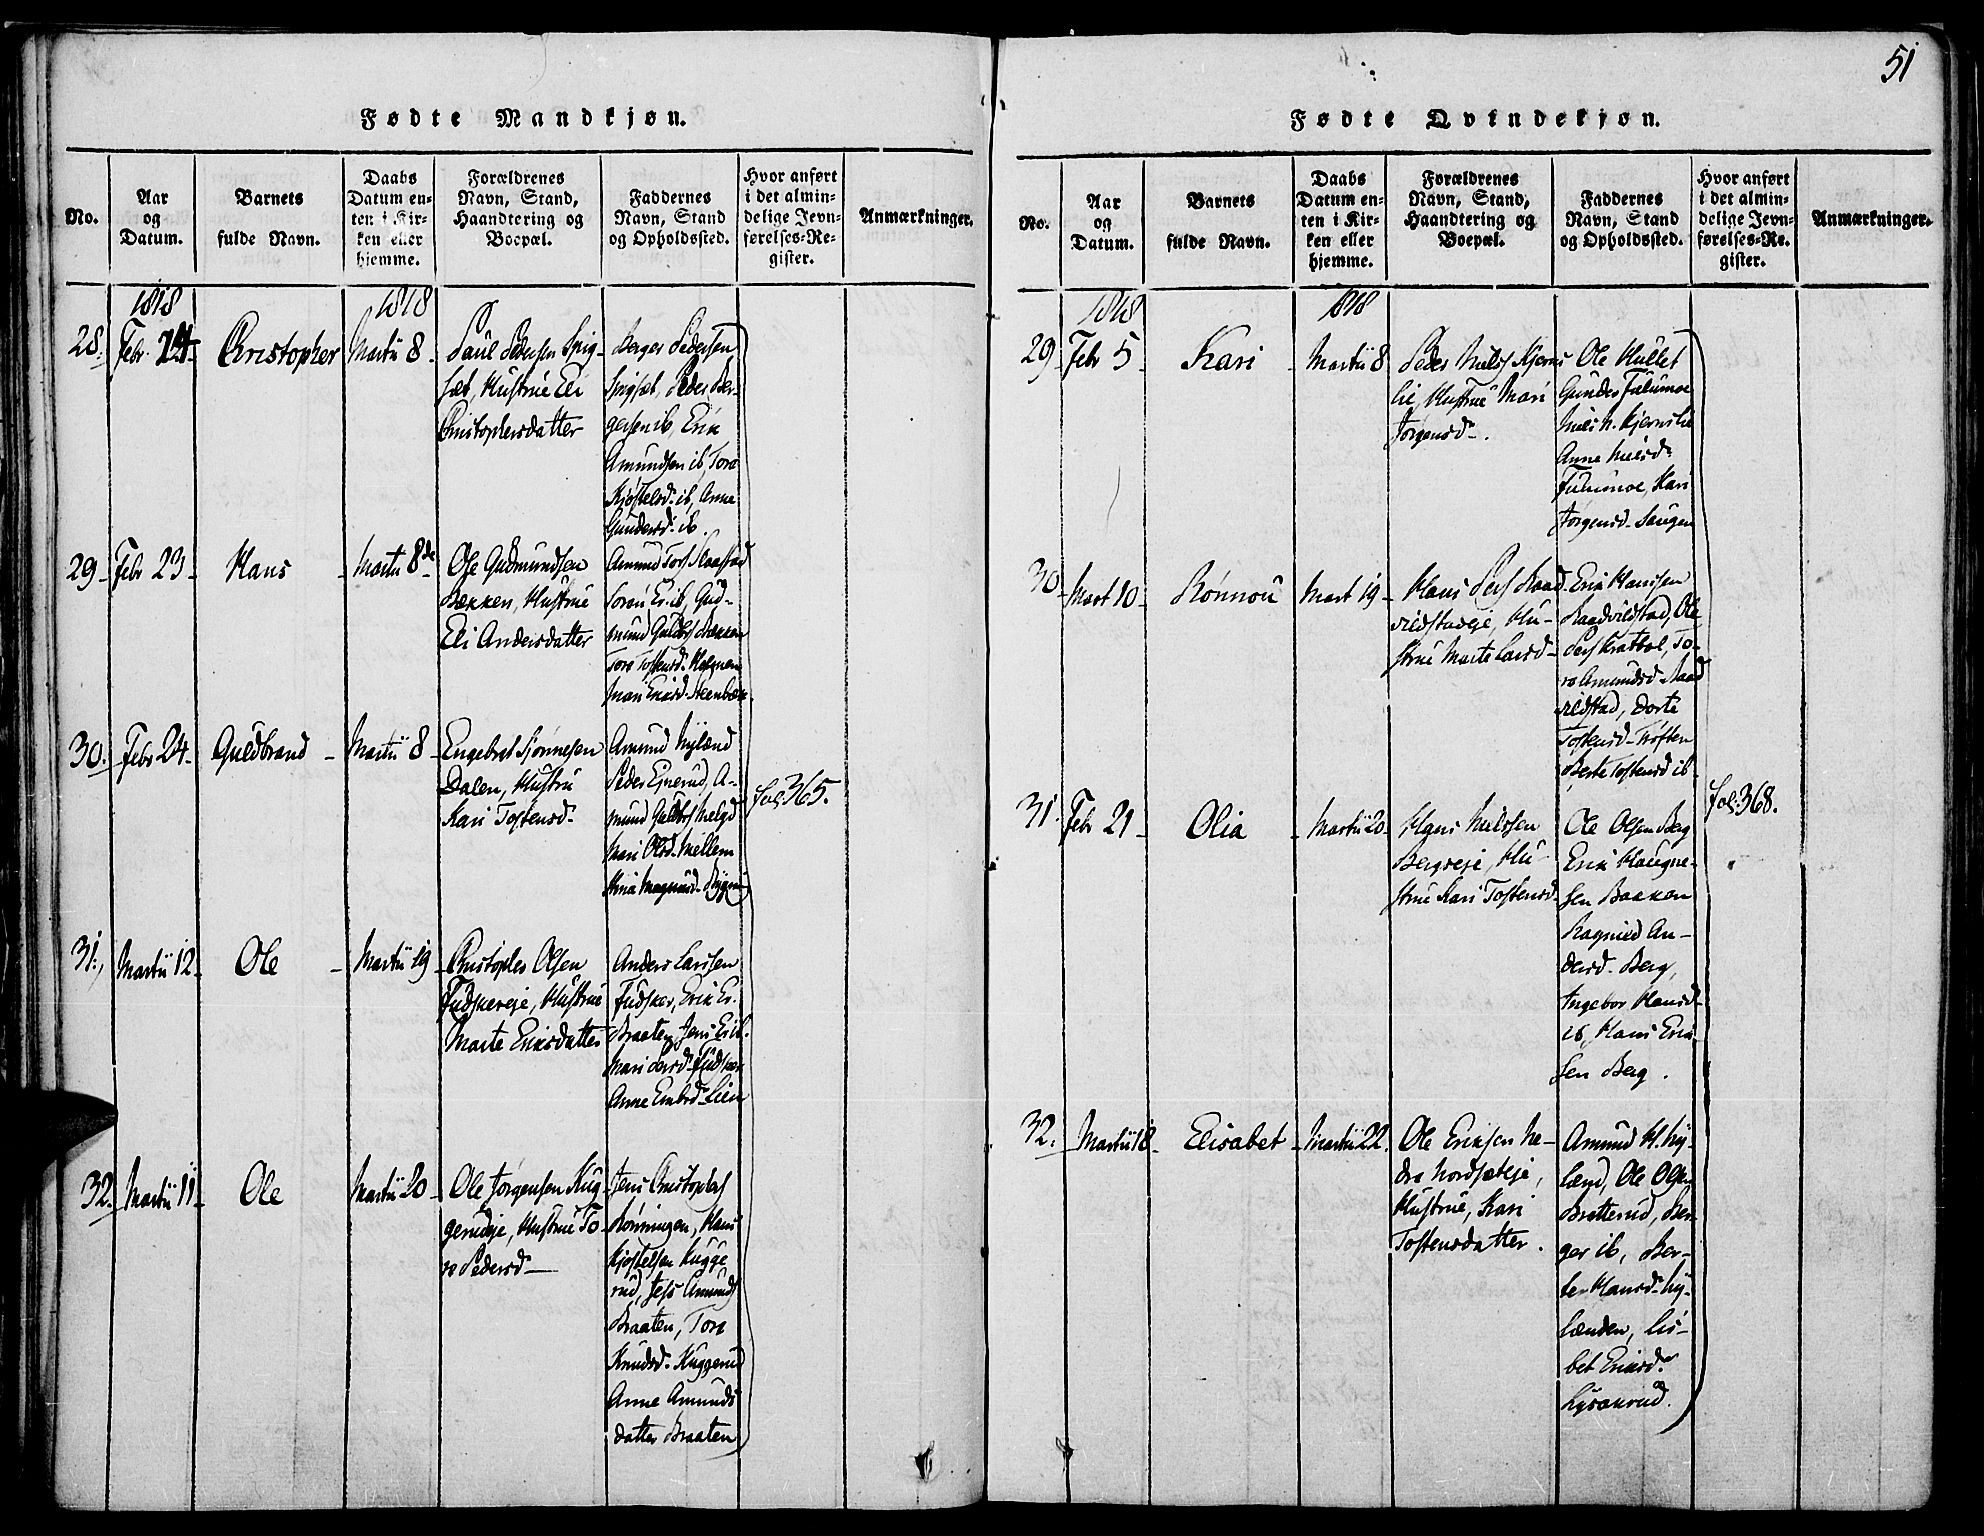 51
Fødte Mandkjøn.
No.
Aar
og
Datum.
Barnets
fulde Navn.
Daabs
Datum en-
ten i Kir-
ken eller
hjemme.
Forældrenes
Navn, Stand,
Haandtering og
Boepæl.
Faddernes
Navn, Stand
og Opholdssted.
Hvor anført
i det almin-
delige Jevn-
førelses-Re-
gister.
Anmærkninger.
1818
1818
28.
Febr. 24
Christopher
Martii 8
Paul Pedersen Spig-
sæt, Hustrue Eli
Christophersdatter
Berger Pedersen
Spigsæt, Peder Ber-
gersen ib, Erik
Amundsen ib, Tore
Kjøstelsd. ib, Anne
Gundersd. ib.
29
Febr 23
Hans
Martii 8de
Ole Gudmundsen
Bækken, Hustrue
Eli Andersdatter
Amund
Gud-
mund Guldbs Bækken
Tore Tostensd.
Mari Eriksd. Steenbæk
30.
Febr 24
Guldbrand
Martii 8
Engebret Simensen
Dalen, Hustru
Kari Tostensd.
Amund Nylænd
Peder Ejnerud, A-
mund Guldbs
Mari Olsd. Mellem
fol. 365.
31.
Martii 12
Ole
Martii 19
Christopher Olsen
Fudskereje, Hustrue
Marte Eriksdatter
Anders Larssen
Fudsker, Erik Er.
Braaten, Jens Er ib.
Mari Larsd. Fudsker
Anne Embrd. Lien
32.
Martii 11
Ole
Martii 20
Ole Jørgensen Kug-
gerudeje, Hustrue To-
re Pedersd.
Jens Christophers
Rønningen, Hans
Kjøstelsen Kugge
rud, Jens Amunds
Braaten, Tore
Knudsd. Kuggerud
Anne Amunds
datter Braaten
Fødte Qvindekjøn.
No.
Aar
og
Datum.
Barnets
fulde Navn.
Daabs
Datum en-
ten i Kir-
ken eller
hjemme.
Forældrenes
Navn, Stand,
Haandtering og
Boepæl.
Faddernes
Navn, Stand
og Opholdssted.
Hvor anført
i det almin-
delige Jevn-
førelses-Re-
gister.
Anmærkninger.
1818
1818
29
Febr 5
Kari
Martii 8
Peder Nielss Kjerns
lie, Hustrue Mari
Jørgensd.
Ole Hullet
Gunder Fulumoe
Niels N. Kjernslie
Anne Nielsd.
Fulumoe, Kari
Jørgensd. Haugen
30
Mart 10
Rønnou
Mart 19
Hans Pers Raad
vildstadeje, Hu-
strue Marte Larsd
Erik Hanssen
Raadvildstad, Ole
Pers Kratbøl, To-
re Amundsd. Raad
vildstad, Dorte
Tostensd. Tøften
Berte Tostensd ib
31.
Febr 21
Olia
Martii 20
Hans Nielssen
Bergseje, Hu-
strue Kari Tostensd.
Ole Olsen Berg
Erik Haugne-
sen Bakken
Ragnild An-
dersd. Berg,
Ingebor Hansd
ib, Hans Erik
sen Berg.
fol. 368.
32.
Martii 18
Elisabet
Martii 22
Ole Eriksen Ne-
dre Nordsæteje,
Hustrue, Kari
Tostensdatter.
Amund H. Ny-
lænd, Ole Olsen
Bratterud, Ber-
ger ib, Ber-
te Hansd. Ny-
lænden, Lis-
bet Eriksd.